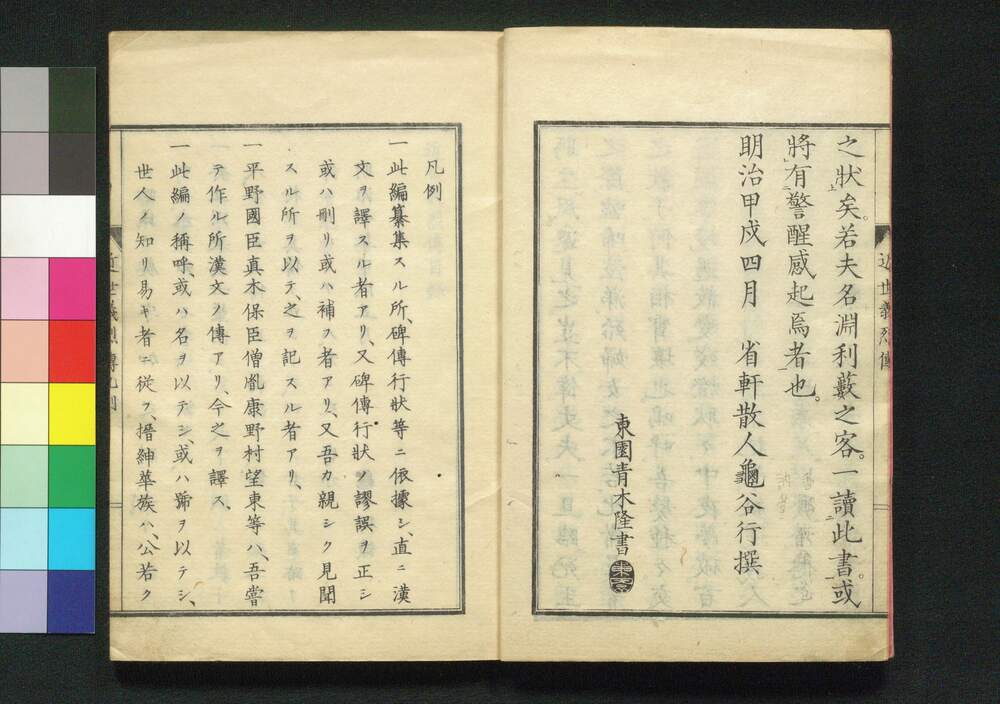 之狀矣。若夫名淵利藪之客。一讀此書。或
將有警醒感起焉者也。
明治甲戌四月　省軒散人龜谷行撰
東園青木隆書
近世義烈傳
凡例
一此編纂集スル所、碑傳行狀等ニ依據シ、直ニ漢
文ヲ譯スル者アリ、又碑傳行狀ノ謬誤ヲ正シ
或ハ刪リ或ハ補フ者アリ、又吾カ親シク見聞
スル所ヲ以テ、之ヲ記スル者アリ、
一平野國臣真木保臣僧胤康野村望東等ハ、吾嘗
テ作ル所漢文ノ傳アリ、今之ヲ譯ス、
一此編ノ稱呼或ハ名ヲ以テシ、或ハ號ヲ以テシ、
世人ノ知リ易キ者ニ從フ、搢紳華族ハ、公若ク
近世義烈傳凡例